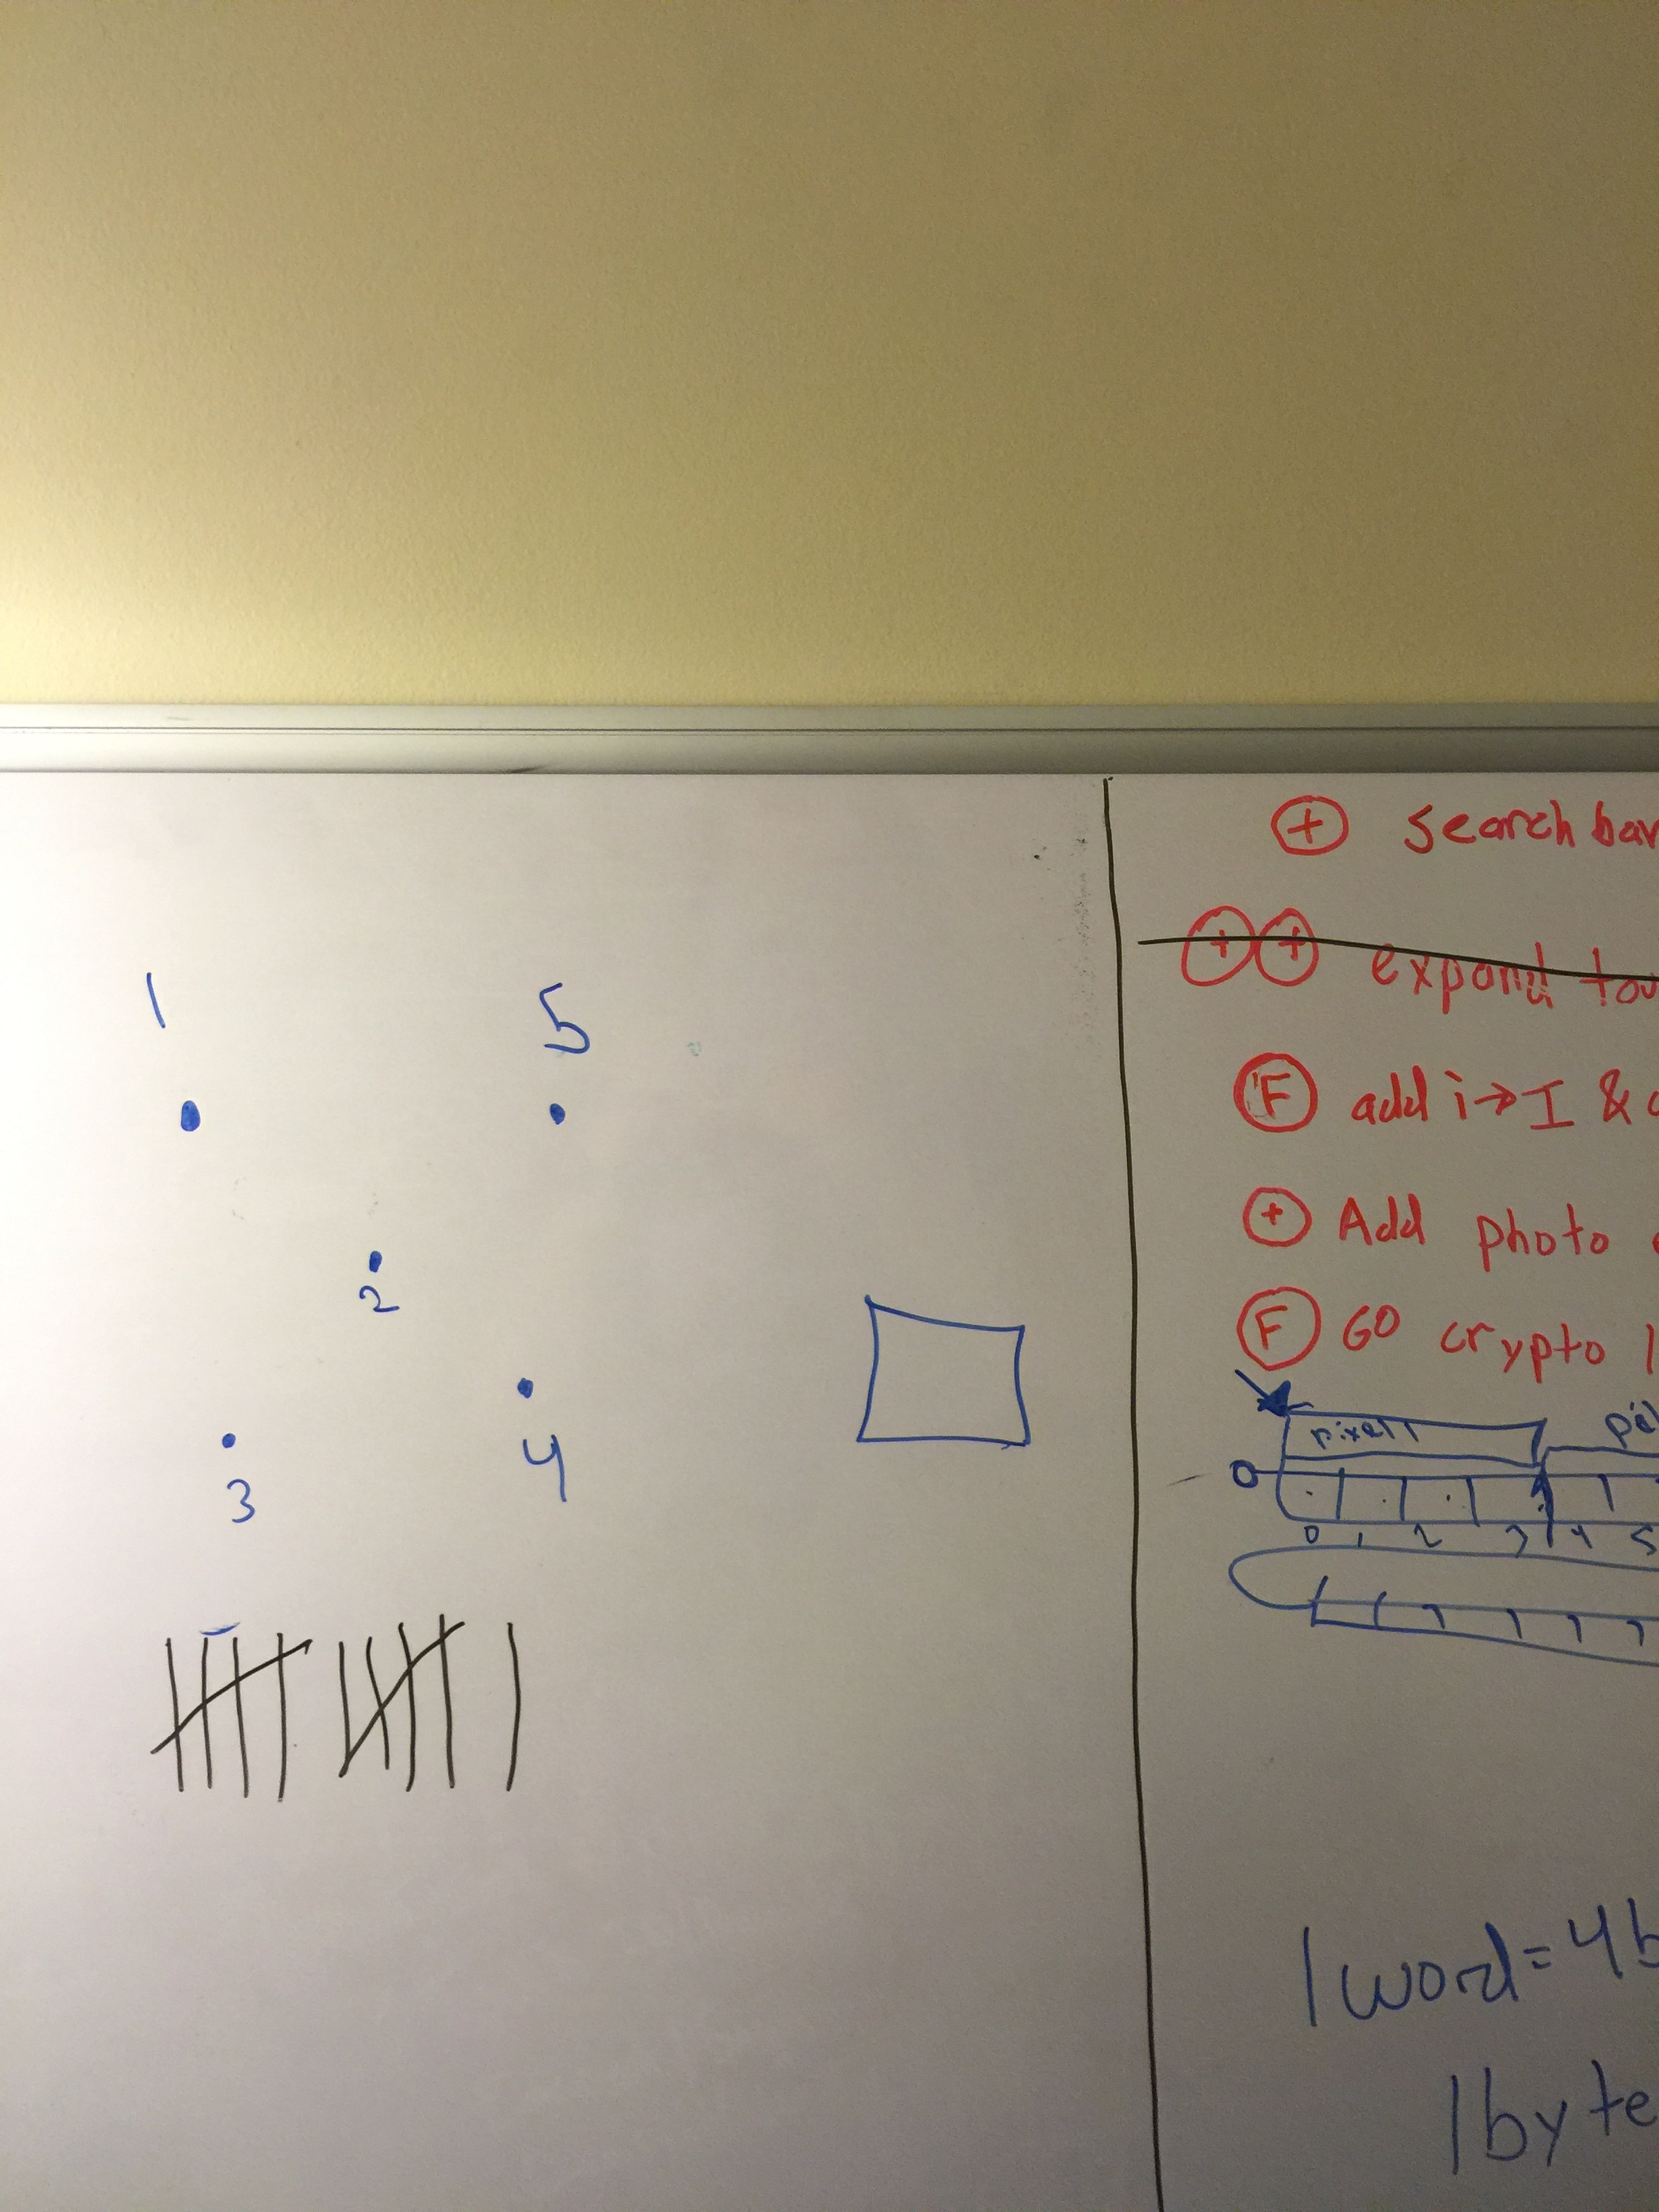 1 5
2
4
3
+ search bar
+ + expand
F add i→I &
+ Add photo
F GO crypto
pixel 1
0
0 1 2 3 4 5
1 word = 4b
1 byte